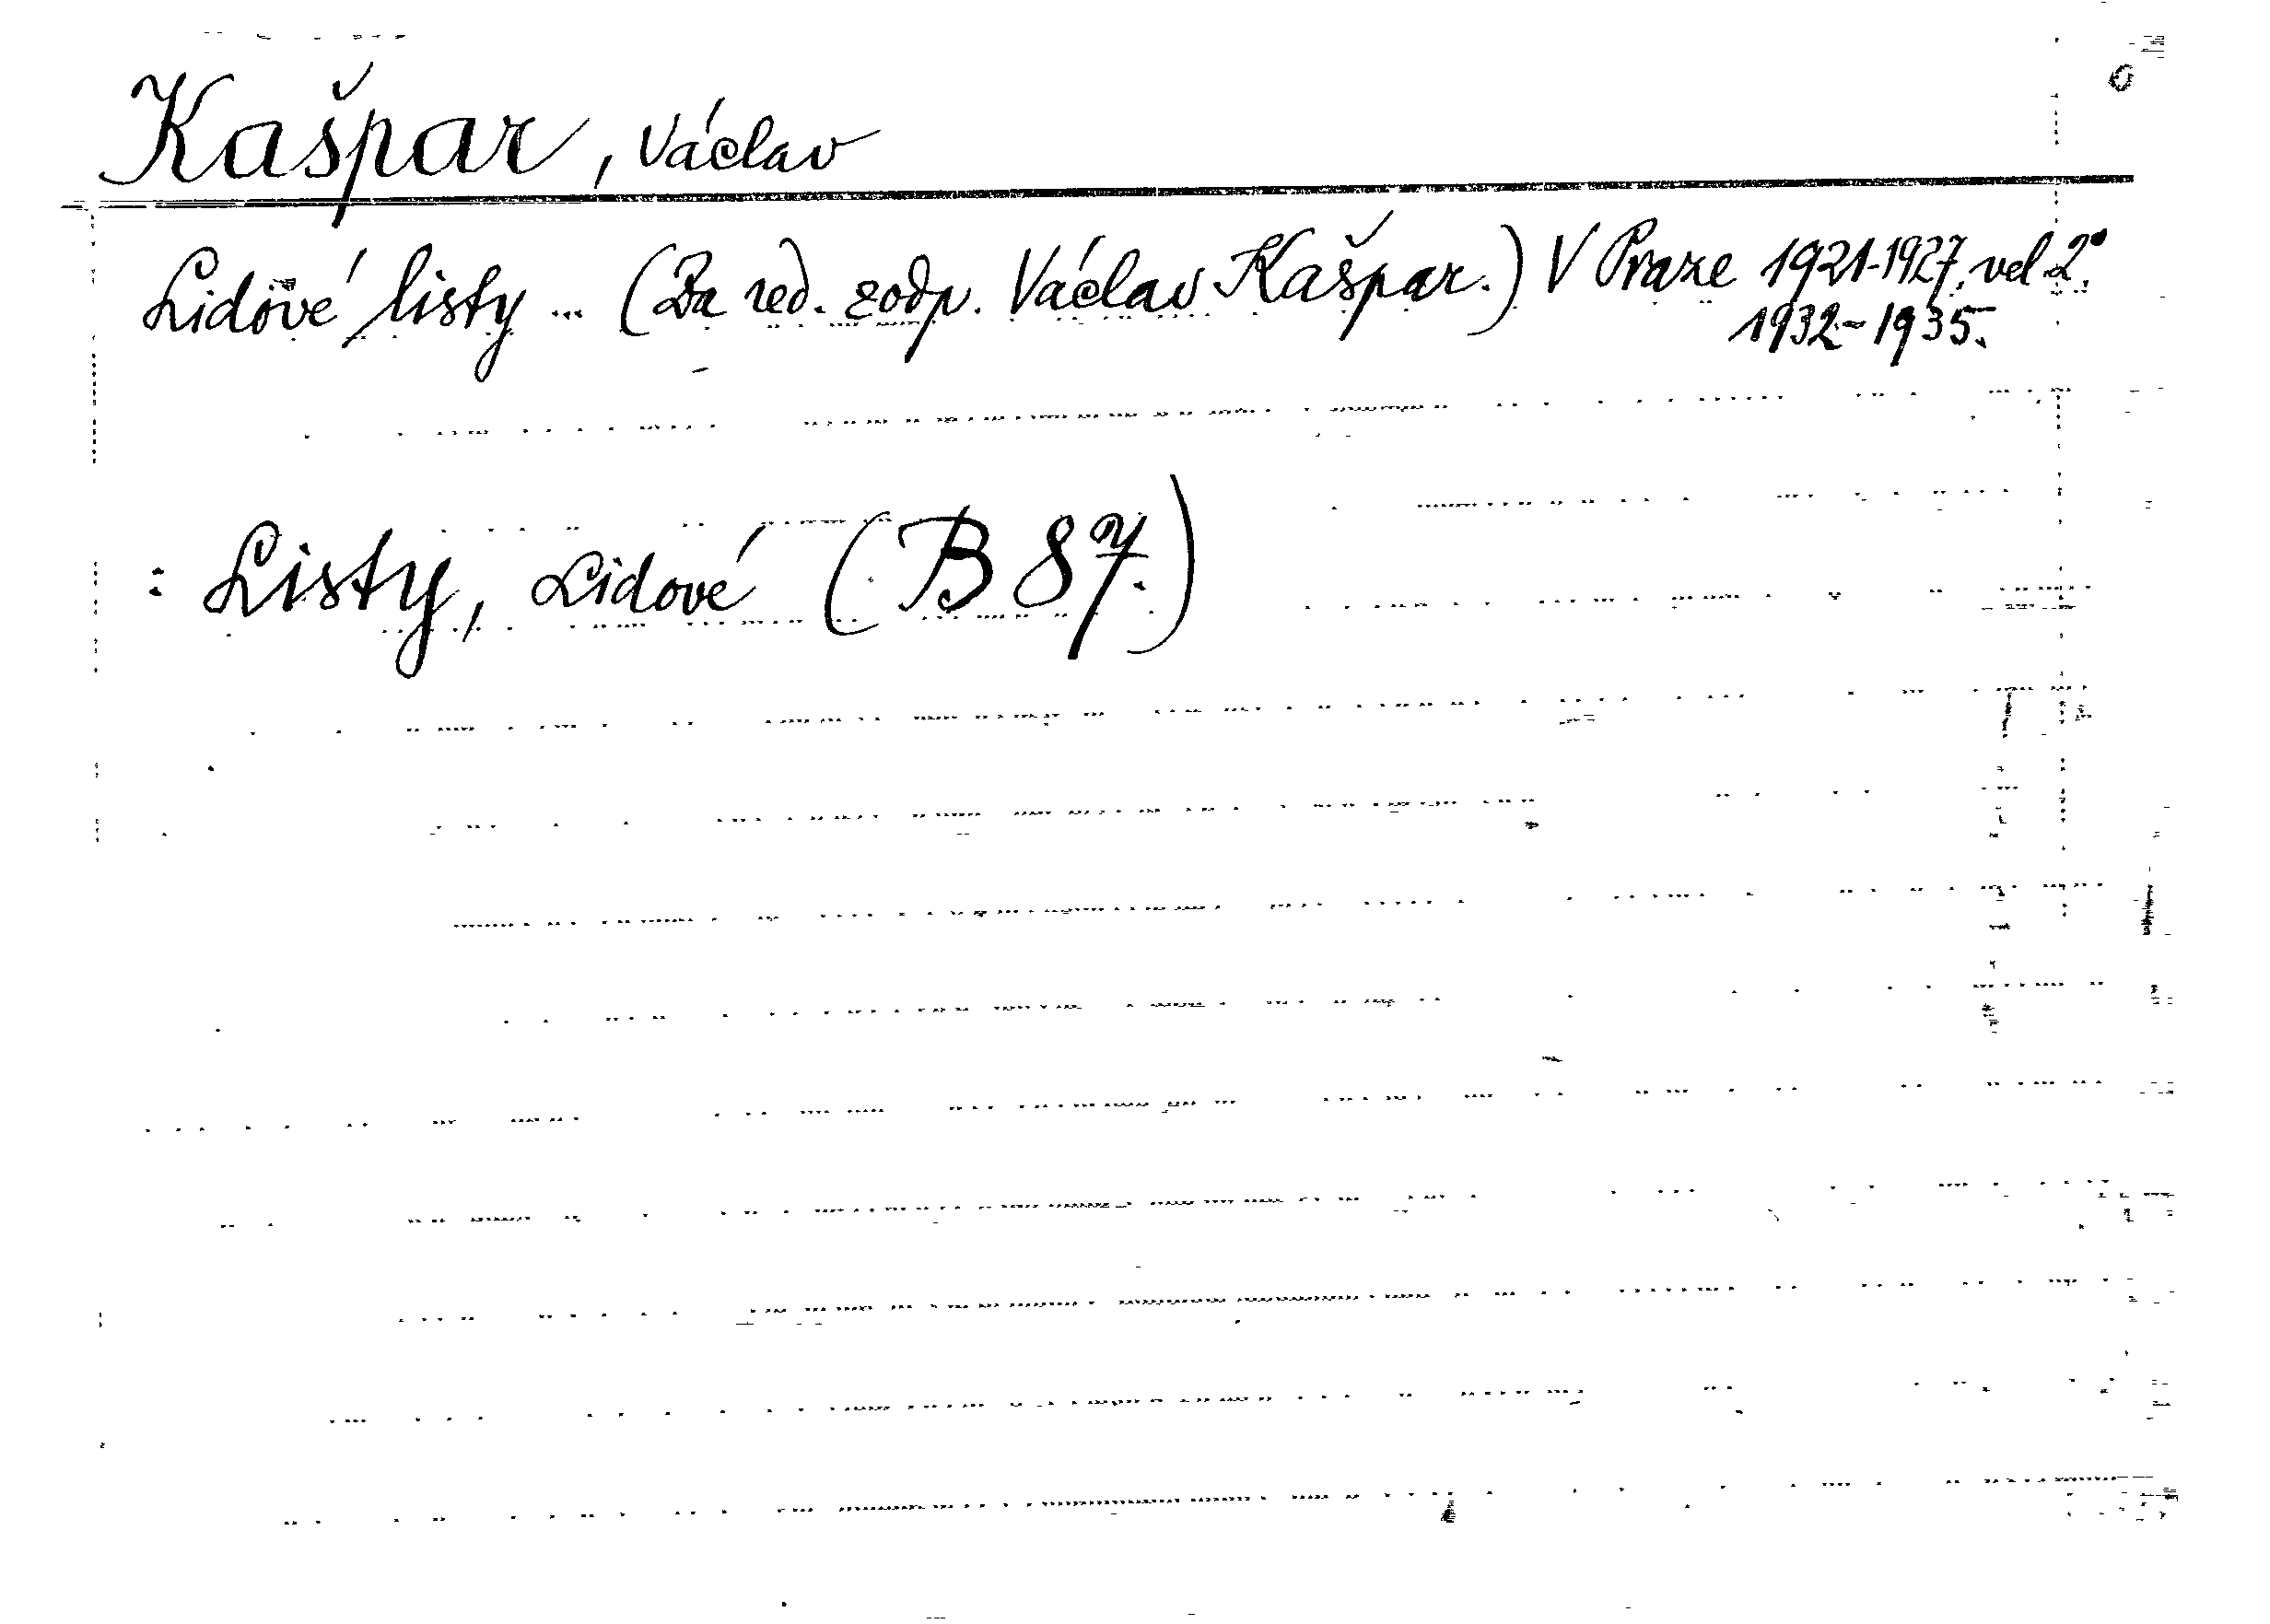 Kašpar, Václav
Lidové listy ... (Za red. zodp. Václav Kašpar.) V Praze 1921-1927, vel 2°.
1932-1935.
: Listy, Lidové (B 87.)